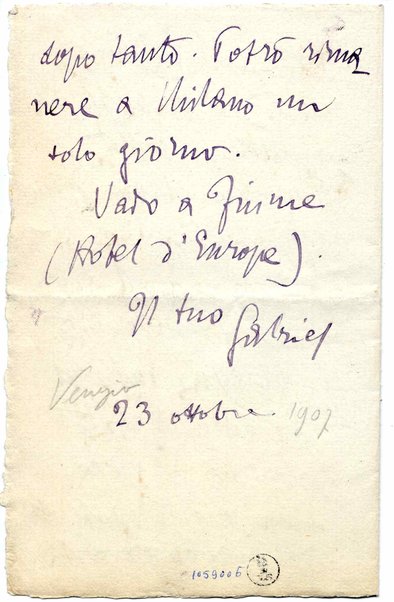 dopo tanto. Potrò rima
nere a Milano un
solo giorno.
Vado a Fiume
(Hotel d'Europe).
Il tuo
Gabriel
Venezia
23 ottobre 1907
1059006